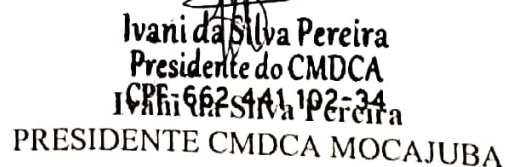 Ivani da Silva Pereira
Presidente do CMDCA
CPF-662.441.102-34
Ivani da Silva Pereira
PRESIDENTE CMDCA MOCAJUBA